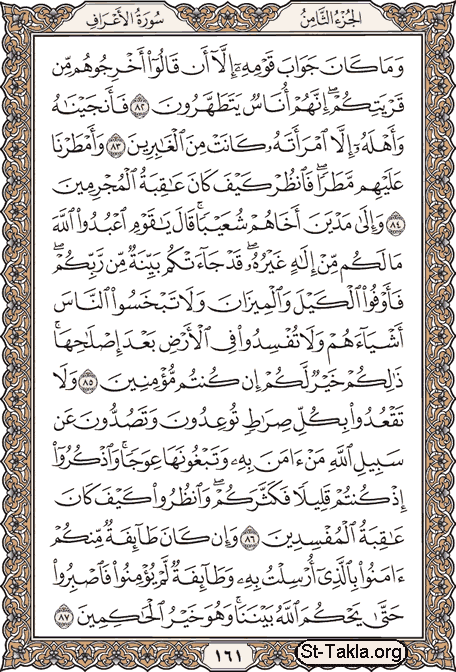 الجزء الثامن
سورة الأعراف
وَمَا كَانَ جَوَابَ قَوْمِهِۦٓ إِلَّآ أَن قَالُوٓا۟ أَخْرِجُوهُم مِّن
قَرْيَتِكُمْ ۖ إِنَّهُمْ أُنَاسٌ يَتَطَهَّرُونَ ٨٢ فَأَنجَيْنَٰهُ
وَأَهْلَهُۥٓ إِلَّا ٱمْرَأَتَهُۥ كَانَتْ مِنَ ٱلْغَٰبِرِينَ ٨٣ وَأَمْطَرْنَا
عَلَيْهِم مَّطَرًا ۖ فَٱنظُرْ كَيْفَ كَانَ عَٰقِبَةُ ٱلْمُجْرِمِينَ
٨٤ وَإِلَىٰ مَدْيَنَ أَخَاهُمْ شُعَيْبًا ۗ قَالَ يَٰقَوْمِ ٱعْبُدُوا۟ ٱللَّهَ
مَا لَكُم مِّنْ إِلَٰهٍ غَيْرُهُۥ ۖ قَدْ جَآءَتْكُم بَيِّنَةٌ مِّن رَّبِّكُمْ ۖ
فَأَوْفُوا۟ ٱلْكَيْلَ وَٱلْمِيزَانَ وَلَا تَبْخَسُوا۟ ٱلنَّاسَ
أَشْيَآءَهُمْ وَلَا تُفْسِدُوا۟ فِى ٱلْأَرْضِ بَعْدَ إِصْلَٰحِهَا ۚ
ذَٰلِكُمْ خَيْرٌ لَّكُمْ إِن كُنتُم مُّؤْمِنِينَ ٨٥ وَلَا
تَقْعُدُوا۟ بِكُلِّ صِرَٰطٍ تُوعِدُونَ وَتَصُدُّونَ عَن
سَبِيلِ ٱللَّهِ مَنْ ءَامَنَ بِهِۦ وَتَبْغُونَهَا عِوَجًا ۚ وَٱذْكُرُوٓا۟
إِذْ كُنتُمْ قَلِيلًا فَكَثَّرَكُمْ ۖ وَٱنظُرُوا۟ كَيْفَ كَانَ
عَٰقِبَةُ ٱلْمُفْسِدِينَ ٨٦ وَإِن كَانَ طَآئِفَةٌ مِّنكُمْ
ءَامَنُوا۟ بِٱلَّذِىٓ أُرْسِلْتُ بِهِۦ وَطَآئِفَةٌ لَّمْ يُؤْمِنُوا۟ فَٱصْبِرُوا۟
حَتَّىٰ يَحْكُمَ ٱللَّهُ بَيْنَنَا ۚ وَهُوَ خَيْرُ ٱلْحَٰكِمِينَ ٨٧
١٦١
St-Takla.org